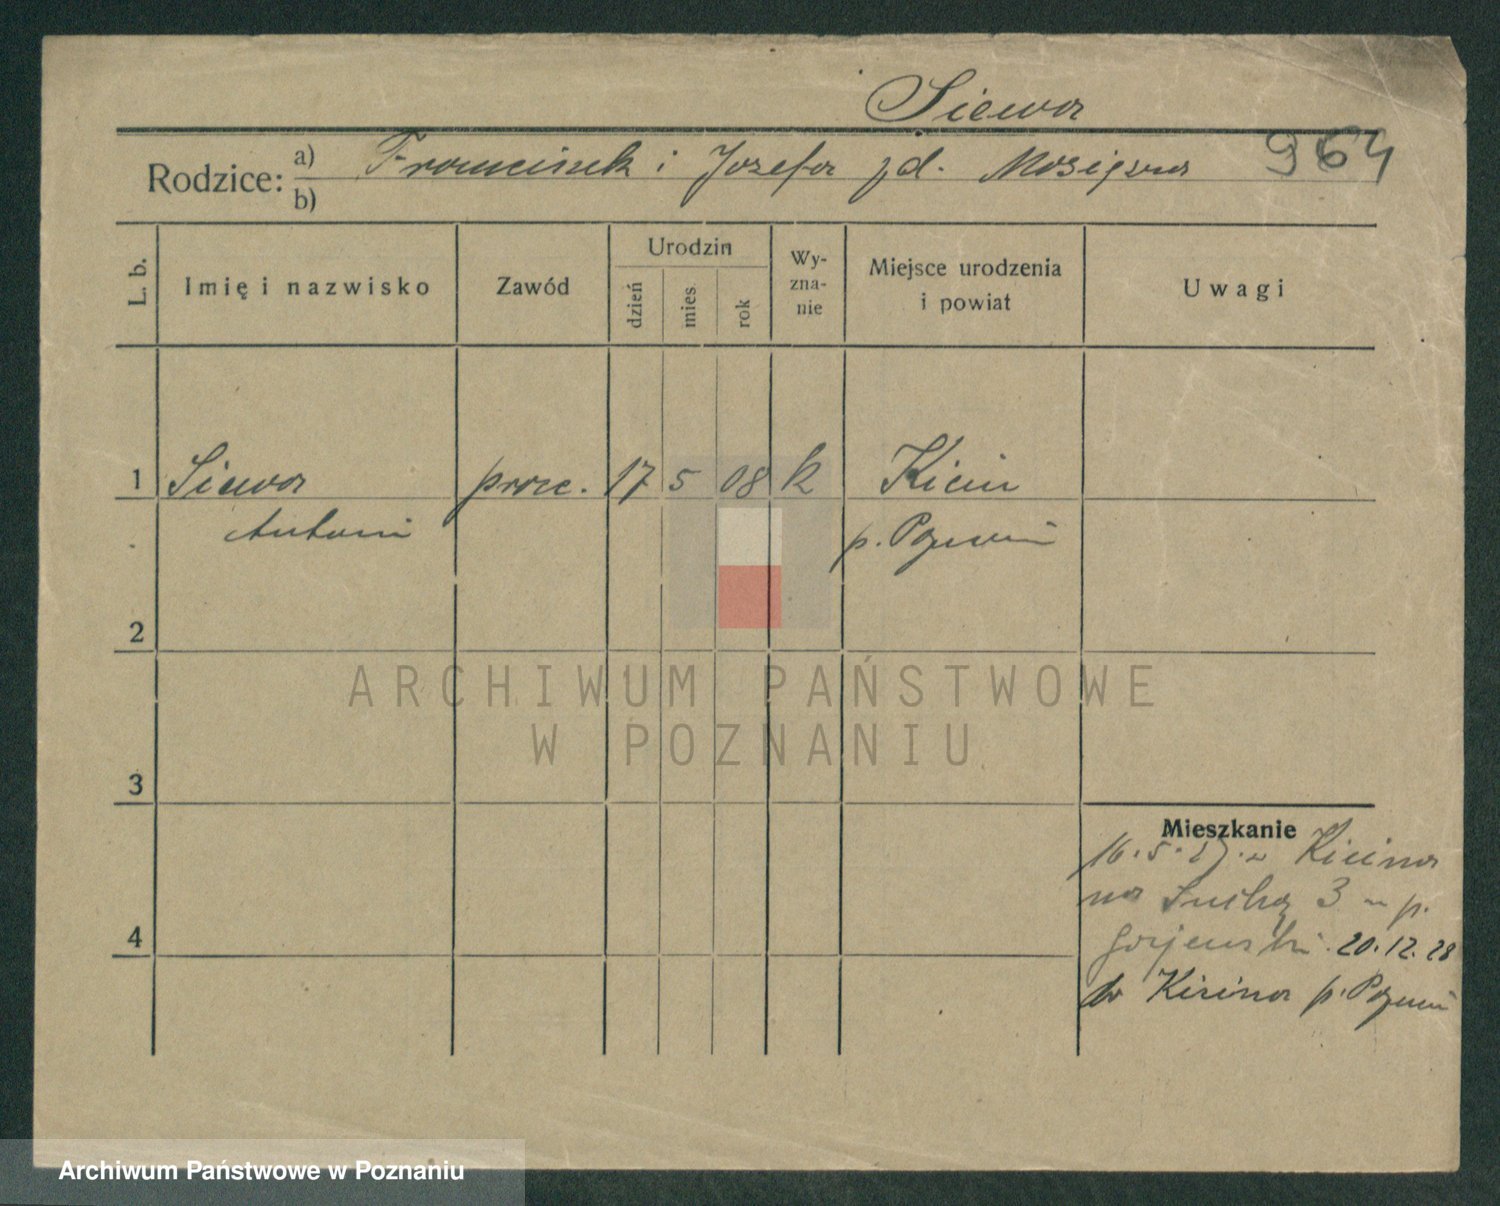 Siewa
964
Rodzice: a) Franciszek i Józefa zd.
b)
L. b.
Imię i nazwisko
Zawód
Urodzin
dzień
mies.
rok
Wy-
zna-
nie
Miejsce urodzenia
i powiat
Uwagi
1 Siewa prac. 17 5 08 k Kicin
Antoni p. Poznań
2
ARCHIWUM PAŃSTWOWE
W POZNANIU
3
Mieszkanie
16.5.27. z Kicina
na Suchą 3 p.
4
20.12.28
do Kicina p. Poznań
Archiwum Państwowe w Poznaniu